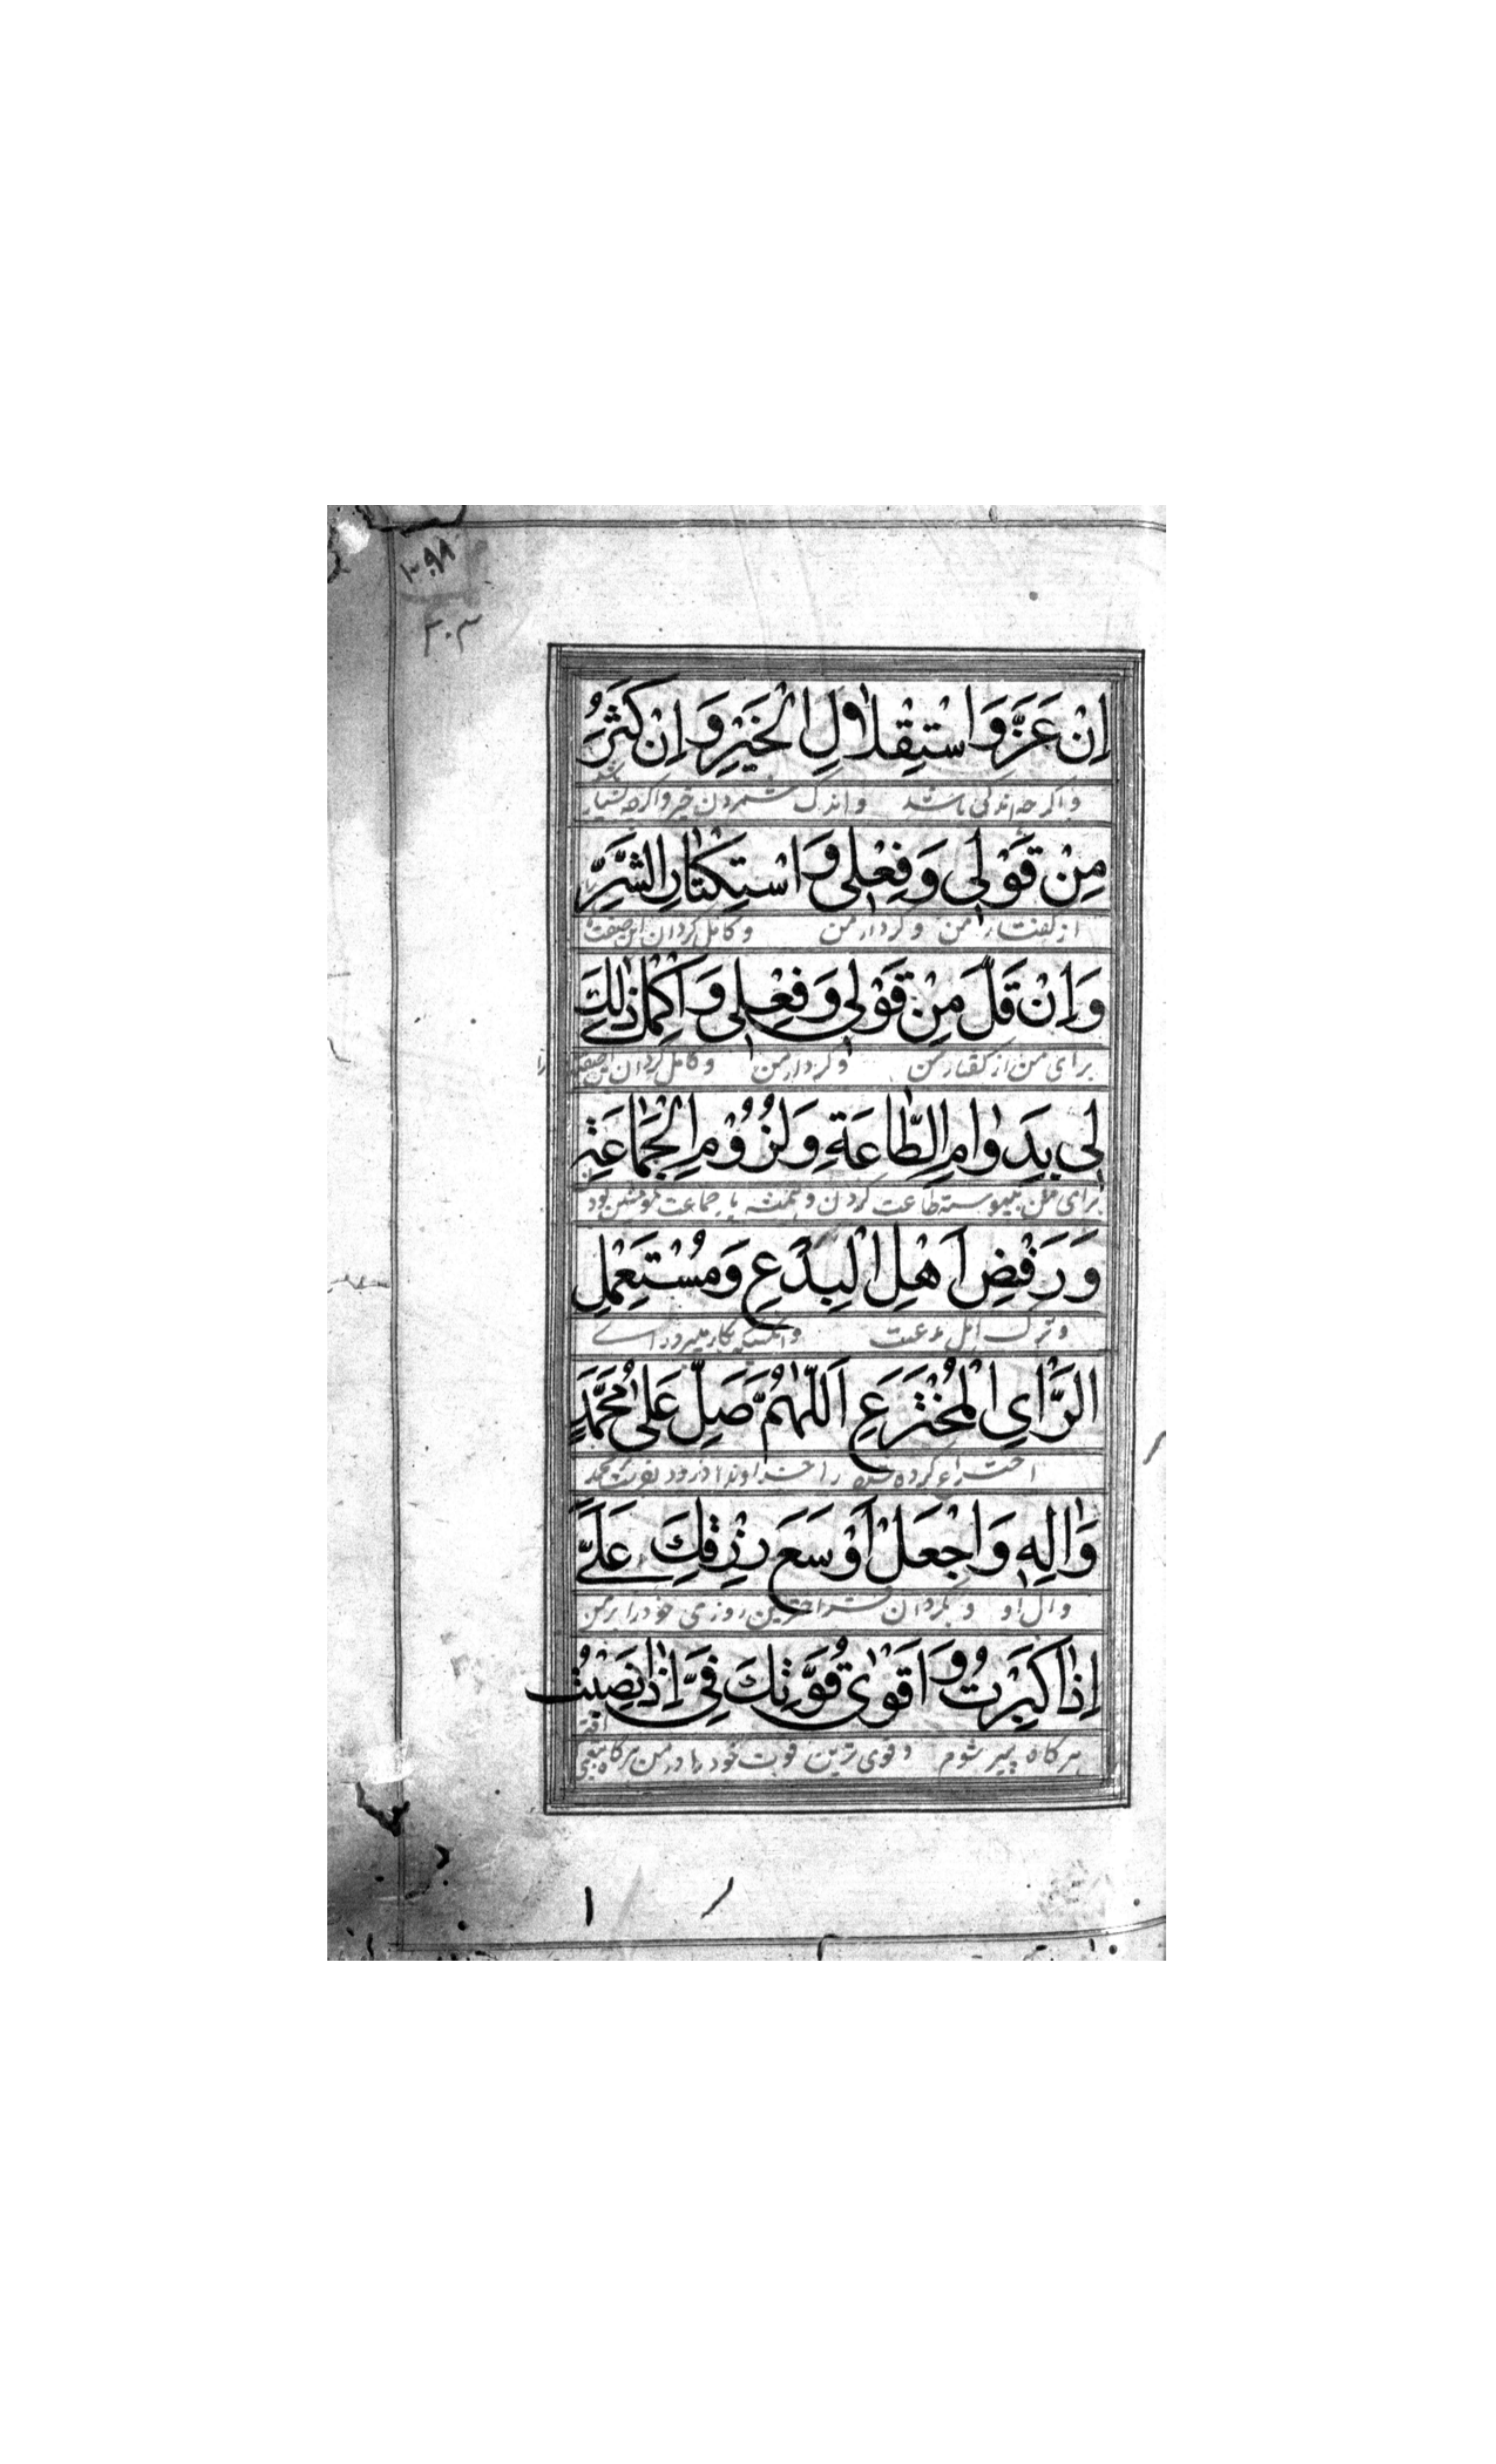 ۱۰۹۸
۳۰۳
اِنْ عَزَّ وَاسْتِقْلٰالِ الْخَيْرِ وَاِنْ كَثُرَ
واکرچه اندکی باشد واندک شمردن خیر واکرچه بسیار باشد
مِنْ قَوْلِي وَفِعْلي وَاسْتِكْثٰارِ الشَّرِّ
از کفتار من وکردار من وکامل کردان این صفتها
وَاِنْ قَلَّ مِنْ قَوْلِي وَفِعْلِي وَاَكْمِلْ ذٰلِكَ
برای من از کفتار من وکردار من وکامل کردان این را
لِي بِدَوٰامِ الطّٰاعَةِ وَلُزُوْمِ الْجَمٰاعَةِ
برای من بپیوسته طاعت کردن وهمیشه با جماعت مومنین بودن
وَرَفْضِ اَهْلِ الْبِدَعِ وَمُسْتَعْمِلِ
وترک اهل بدعت
الرَّاْيِ الْمُخْتَرَعِ اَللّٰهُمَّ صَلِّ عَلٰى مُحَمَّدٍ
اختراع کرده شده را خداوندا درود بفرست بر محمد
وَاٰلِهِ وَاجْعَلْ اَوْسَعَ رِزْقِكَ عَلَيَّ
وآل او وبکردان فراخترین روزی خود را بر من
اِذٰا كَبِرْتُ وَاَقْوٰى قُوَّتِكَ فِيَّ اِذٰا نَصِبْتُ
هرکاه پیر شوم وقوی ترین قوت خود را در من هرکاه بتعب افتم